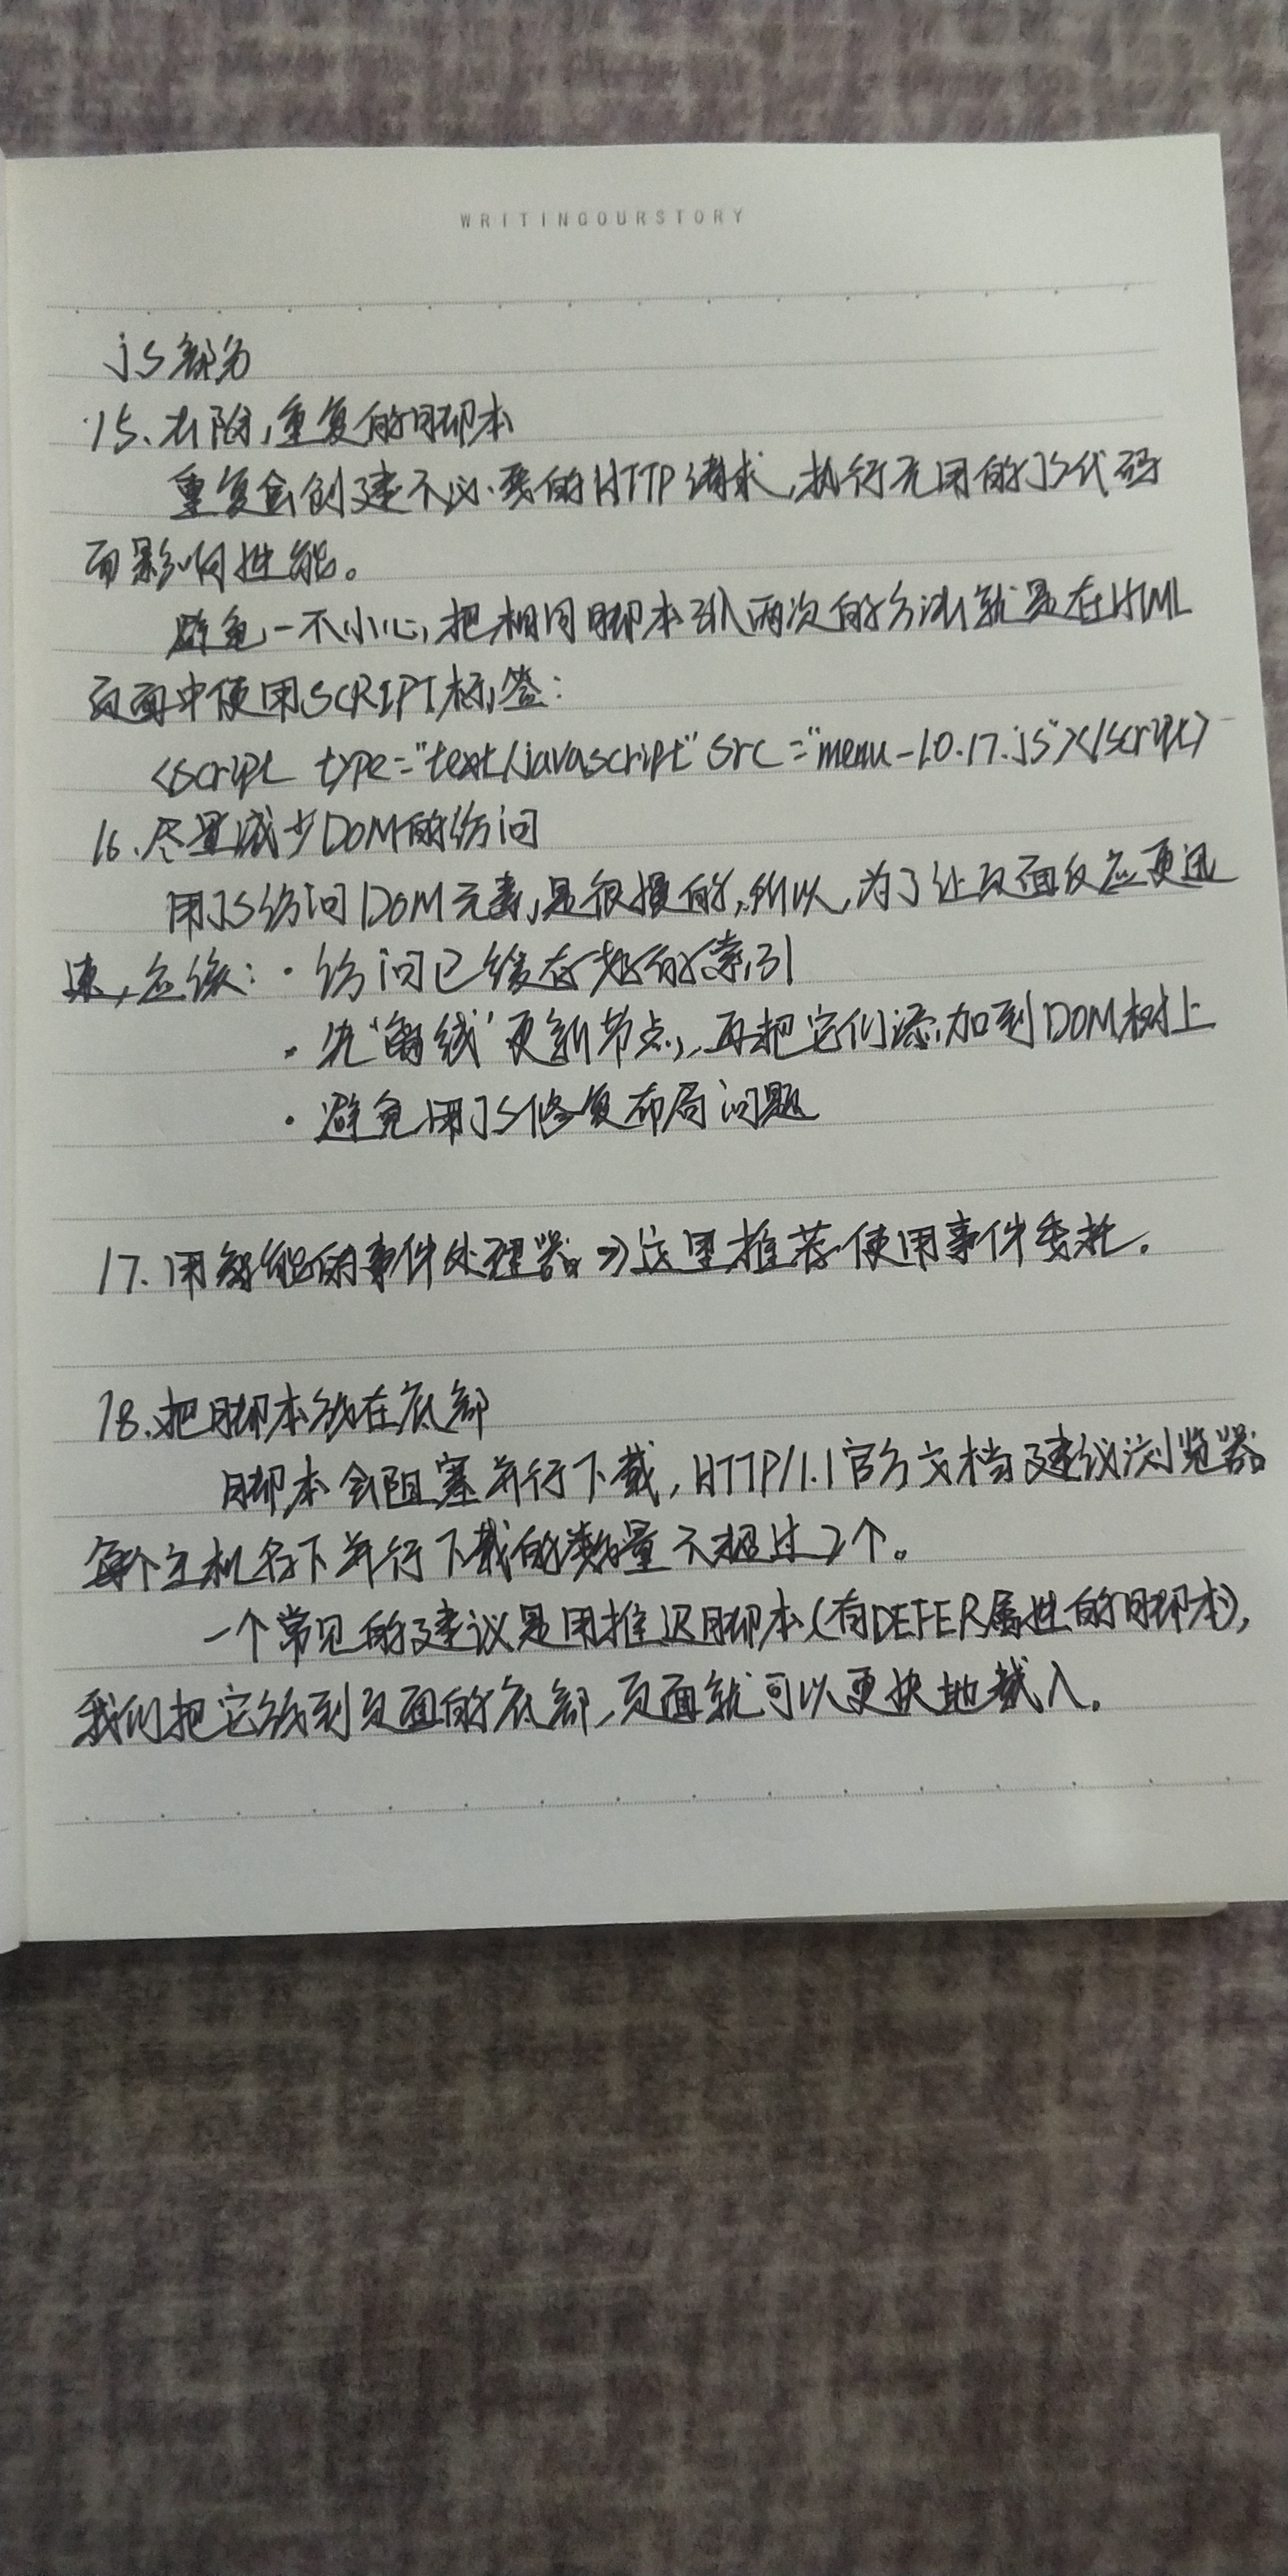 WRITINGOURSTORY
js部分
15、去除重复的脚本
重复会创建不必要的HTTP请求,执行无用的JS代码
而影响性能。
避免一不小心,把相同脚本引入两次的方法就是在HTML
页面中使用SCRIPT标签:
<script type="text/javascript" src="menu-1.0.17.js"></script>
16、尽量减少DOM的访问
用JS访问DOM元素是很慢的,所以,为了让页面反应更迅
速,应该:·访问已缓存好的索引
·先"离线"更新节点,再把它们添加到DOM树上
·避免用JS修复布局问题
17.用智能的事件处理器⇒这里推荐使用事件委托.
18.把脚本放在底部
脚本会阻塞并行下载,HTTP/1.1官方文档建议浏览器
每个主机名下并行下载的数量不超过2个。
一个常见的建议是用推迟脚本(有DEFER属性的脚本),
我们把它放到页面的底部,页面就可以更快地载入.